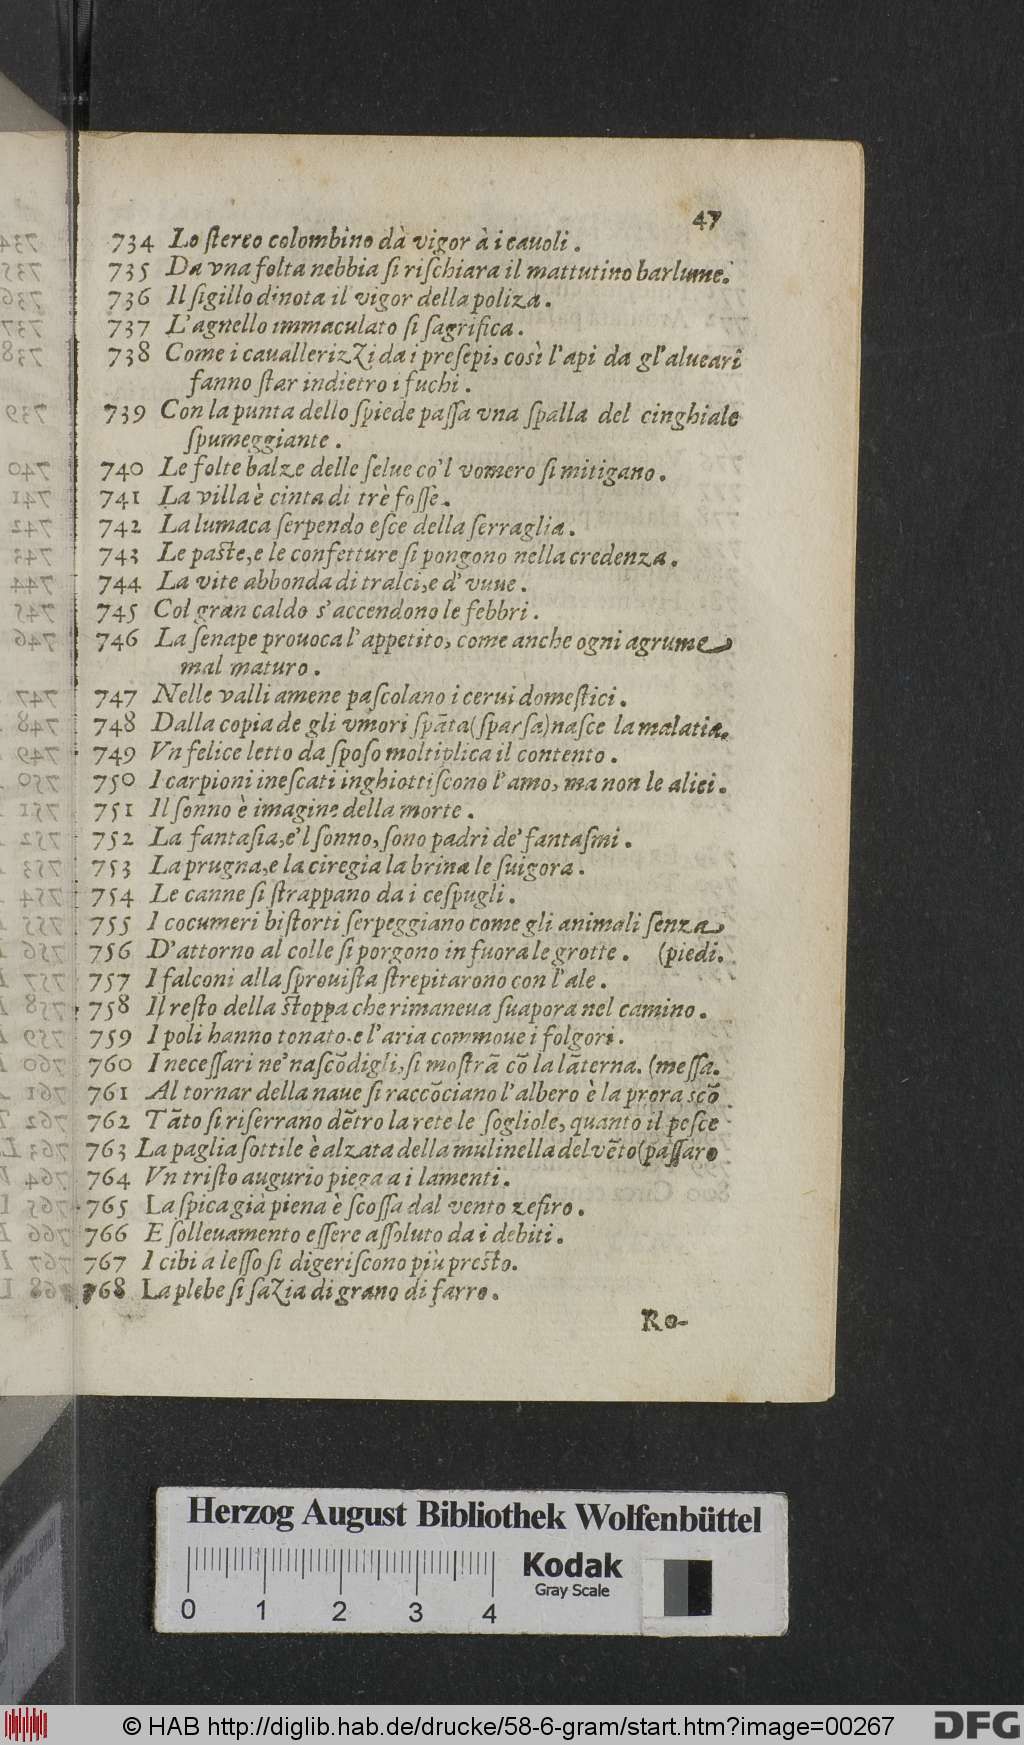 47
734 Lo ſtereo colombino dà vigor à i cauoli.
735 Da vna folta nebbia ſi riſchiara il mattutino barlume.
736 Il ſigillo dinota il vigor della poliza.
737 L'agnello immaculato ſi ſagrifica.
738 Come i cauallerizzi da i preſepi, così l'api da gl'alueari
fanno ſtar indietro i fuchi.
739 Con la punta dello ſpiede paſſa vna ſpalla del cinghiale
ſpumeggiante.
740 Le folte balze delle ſelue co'l vomero ſi mitigano.
741 La villa è cinta di trè foſſe.
742 La lumaca ſerpendo eſce della ſerraglia.
743 Le paſte, e le confetture ſi pongono nella credenza.
744 La vite abbonda di tralci, e d'vuue.
745 Col gran caldo s'accendono le febbri.
746 La ſenape prouoca l'appetito, come anche ogni agrume
mal maturo.
747 Nelle valli amene paſcolano i cerui domeſtici.
748 Dalla copia de gli vmori ſpāta (ſparſa) naſce la malatia.
749 Vn felice letto da ſpoſo moltiplica il contento.
750 I carpioni ineſcati inghiottiſcono l'amo, ma non le alici.
751 Il ſonno è imagine della morte.
752 La fantaſia, e'l ſonno, ſono padri de' fantaſmi.
753 La prugna, e la ciregia la brina le ſuigora.
754 Le canne ſi ſtrappano da i ceſpugli.
755 I cocumeri biſtorti ſerpeggiano come gli animali ſenza
756 D'attorno al colle ſi porgono in fuora le grotte. (piedi.
757 I falconi alla ſprouiſta ſtrepitarono con l'ale.
758 Il reſto della ſtoppa che rimaneua ſuapora nel camino.
759 I poli hanno tonato, e l'aria commoue i folgori.
760 I neceſſari ne' naſcōdigli, ſi moſtrā cō la lāterna. (meſſa.
761 Al tornar della naue ſi raccōciano l'albero è la prora scō
762 Tāto ſi riſerrano dētro la rete le ſogliole, quanto il peſce
763 La paglia ſottile è alzata della mulinella del vēto (paſſaro
764 Vn triſto augurio piega a i lamenti.
765 La ſpica già piena è ſcoſſa dal vento zefiro.
766 E ſolleuamento eſſere aſſoluto da i debiti.
767 I cibi a leſſo ſi digeriſcono più preſto.
768 La plebe ſi ſazia di grano di farro.
Ro-
Herzog August Bibliothek Wolfenbüttel
Kodak
Gray Scale
0 1 2 3 4
© HAB http://diglib.hab.de/drucke/58-6-gram/start.htm?image=00267
DFG